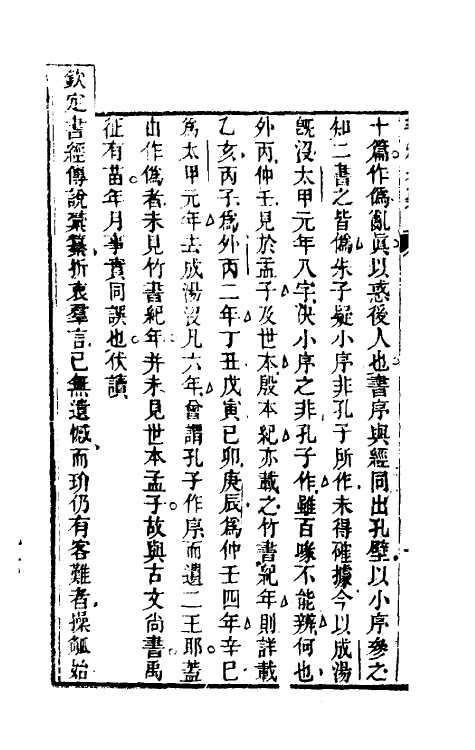 十篇作僞亂眞以惑後人也書序與經同出孔壁以小序參之
知二書之皆僞朱子疑小序非孔子所作未得確據今以成湯
旣沒太甲元年八字決小序之非孔子作雖百喙不能辨何也
外丙仲壬見於孟子及世本殷本紀亦載之竹書紀年則詳載
乙亥丙子爲外丙二年丁丑戊寅己卯庚辰爲仲壬四年辛巳
爲太甲元年去成湯沒凡六年曾謂孔子作序而遺二王耶蓋
出作僞者未見竹書紀年并未見世本孟子故與古文尚書禹
征有苗年月事實同誤也伏讀
欽定書經傳說彙纂折衷羣言已無遺憾而功仍有客難者操觚始